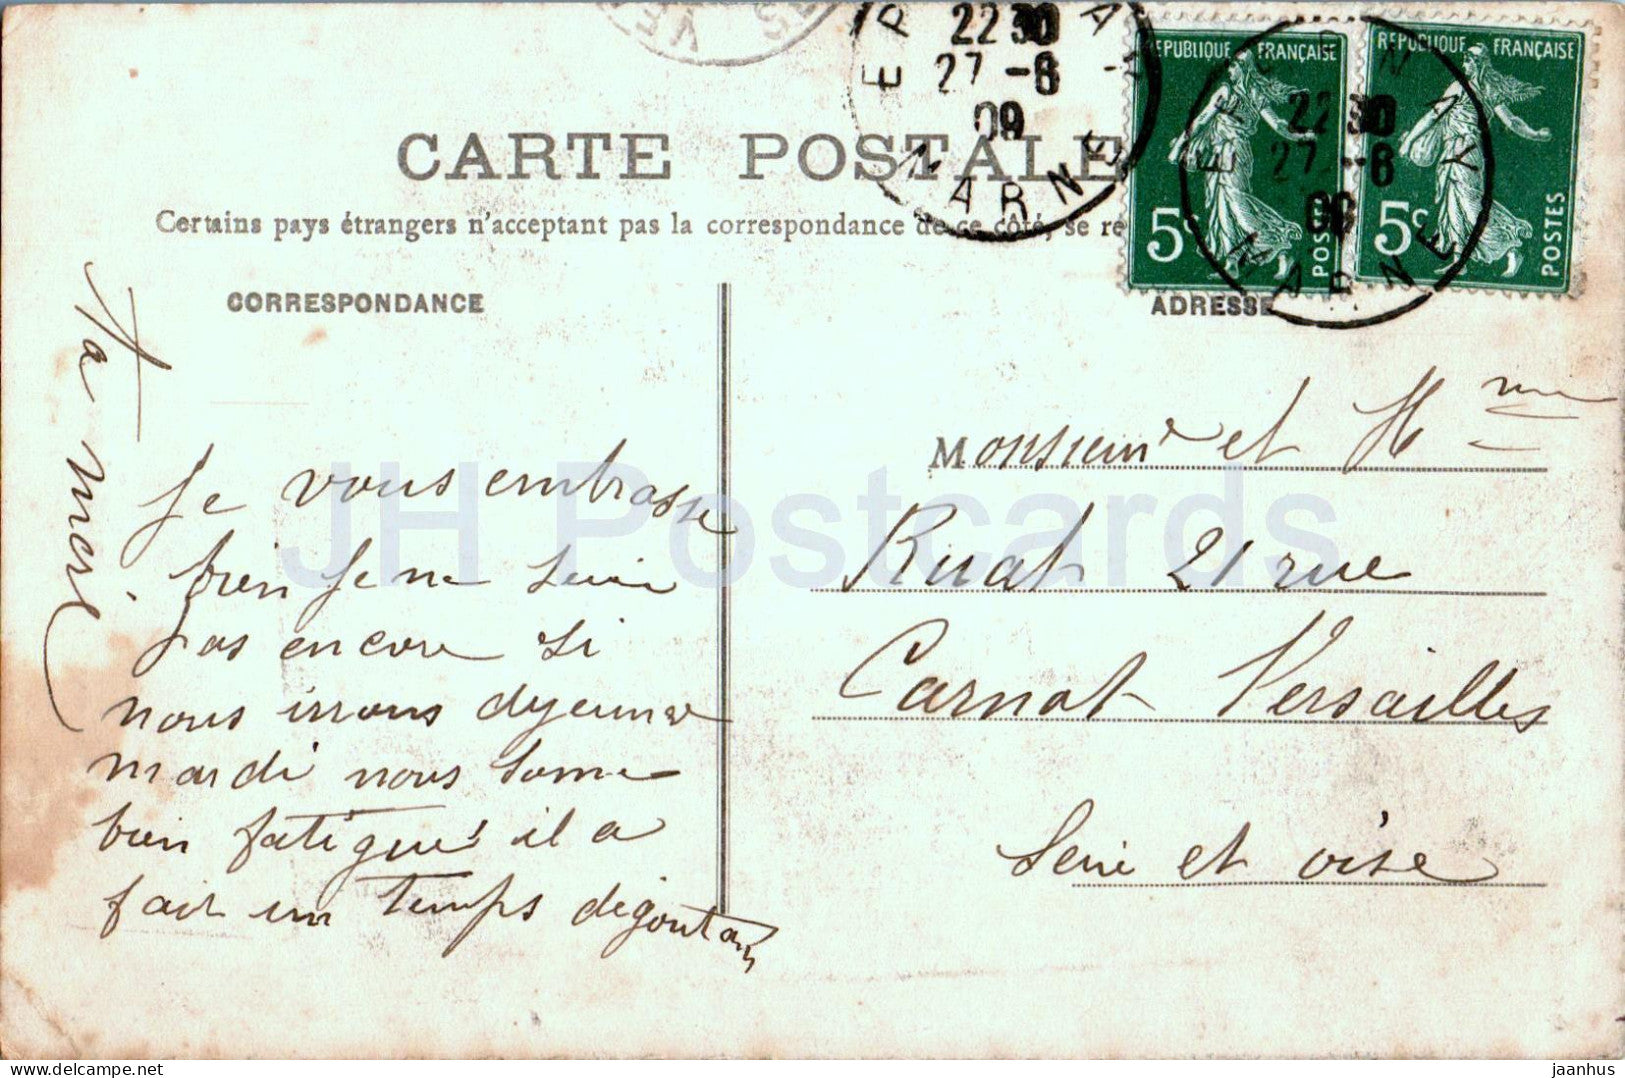 CARTE POSTALE
Certains pays étrangers n'acceptent pas la correspondance de ce côté, se re
CORRESPONDANCE
ADRESSE
EPERNAY
22 30
27 -6
09
MARNE
REPUBLIQUE FRANÇAISE
5c
POSTES
REPUBLIQUE FRANÇAISE
5c
POSTES
EPERNAY
22 30
27 -6
09
MARNE
Je vous embrasse
bien Je ne
pas encore si
nous irrons dyeuner
mardi nous some
bien fatigué il a
fait un temps dégoutans
Monsieur et Mme
Ruat 21 rue
Carnot Versailles
Seine et oise
JH Postcards
https://www.delcampe.net
jaanhus